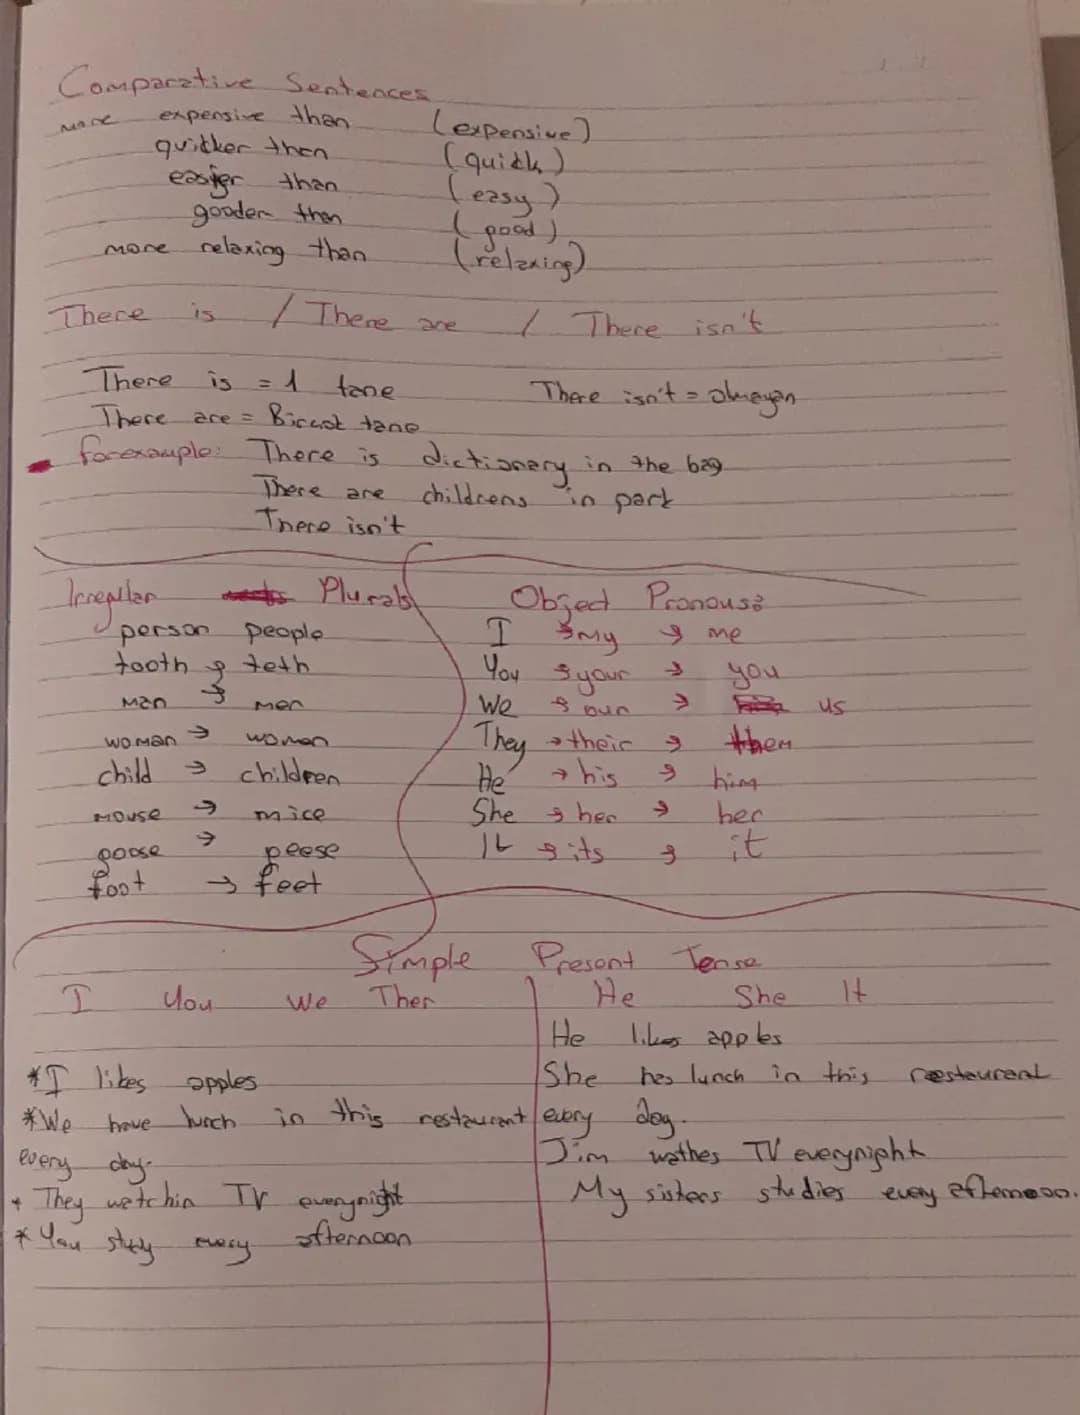 Comparative Sentences
more expensive than (expensive)
quicker then (quick)
easier than (easy)
gooder then (good)
more relaxing than (relaxing)
There is / There are / There isn't
There is = 1 tane There isn't = olmayan
There are = Birçok tane
forexample: There is dictionary in the bag
There are childrens in park
There isn't
Irregular Plurals
person people
tooth → teth
man → men
woman → women
child → children
mouse → mice
goose → peese
foot → feet
Object Pronouns
I → my → me
You → your → you
We → our → us
They → their → them
He → his → him
She → her → her
It → its → it
Simple Present Tense
I You We Ther
* I likes apples
* We have lunch in this restaurant
every day.
* They watchin TV everynight
* You study every afternoon
He She It
He likes apples
She has lunch in this restaurent
every day.
Jim wathes TV everynight
My sisters studies every afternoon.